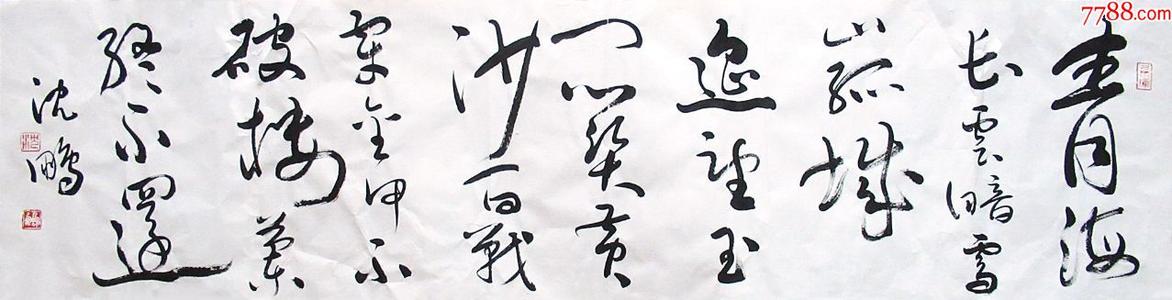 7788.com
青海
长雲暗雪
山孤城
遥望玉
门关黄
沙百戰
穿金甲不
破楼蘭
終不還
沈鹏